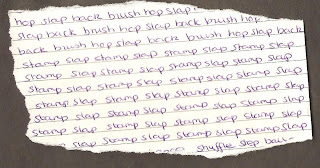 hop slap back brush hop slap -
slap back brush hop slap back brush hop
back brush hop slap back brush hop slap back
stamp slap stamp slap stamp slap stamp slap
stamp slap stamp slap stamp slap stamp slap
stamp slap stamp slap stamp slap stamp slap
slap stamp slap stamp slap stamp slap stamp
slap stamp slap stamp slap stamp slap stamp
stamp slap stamp slap stamp slap stamp slap
slap stamp slap stamp slap stamp slap
shuffle step ball -